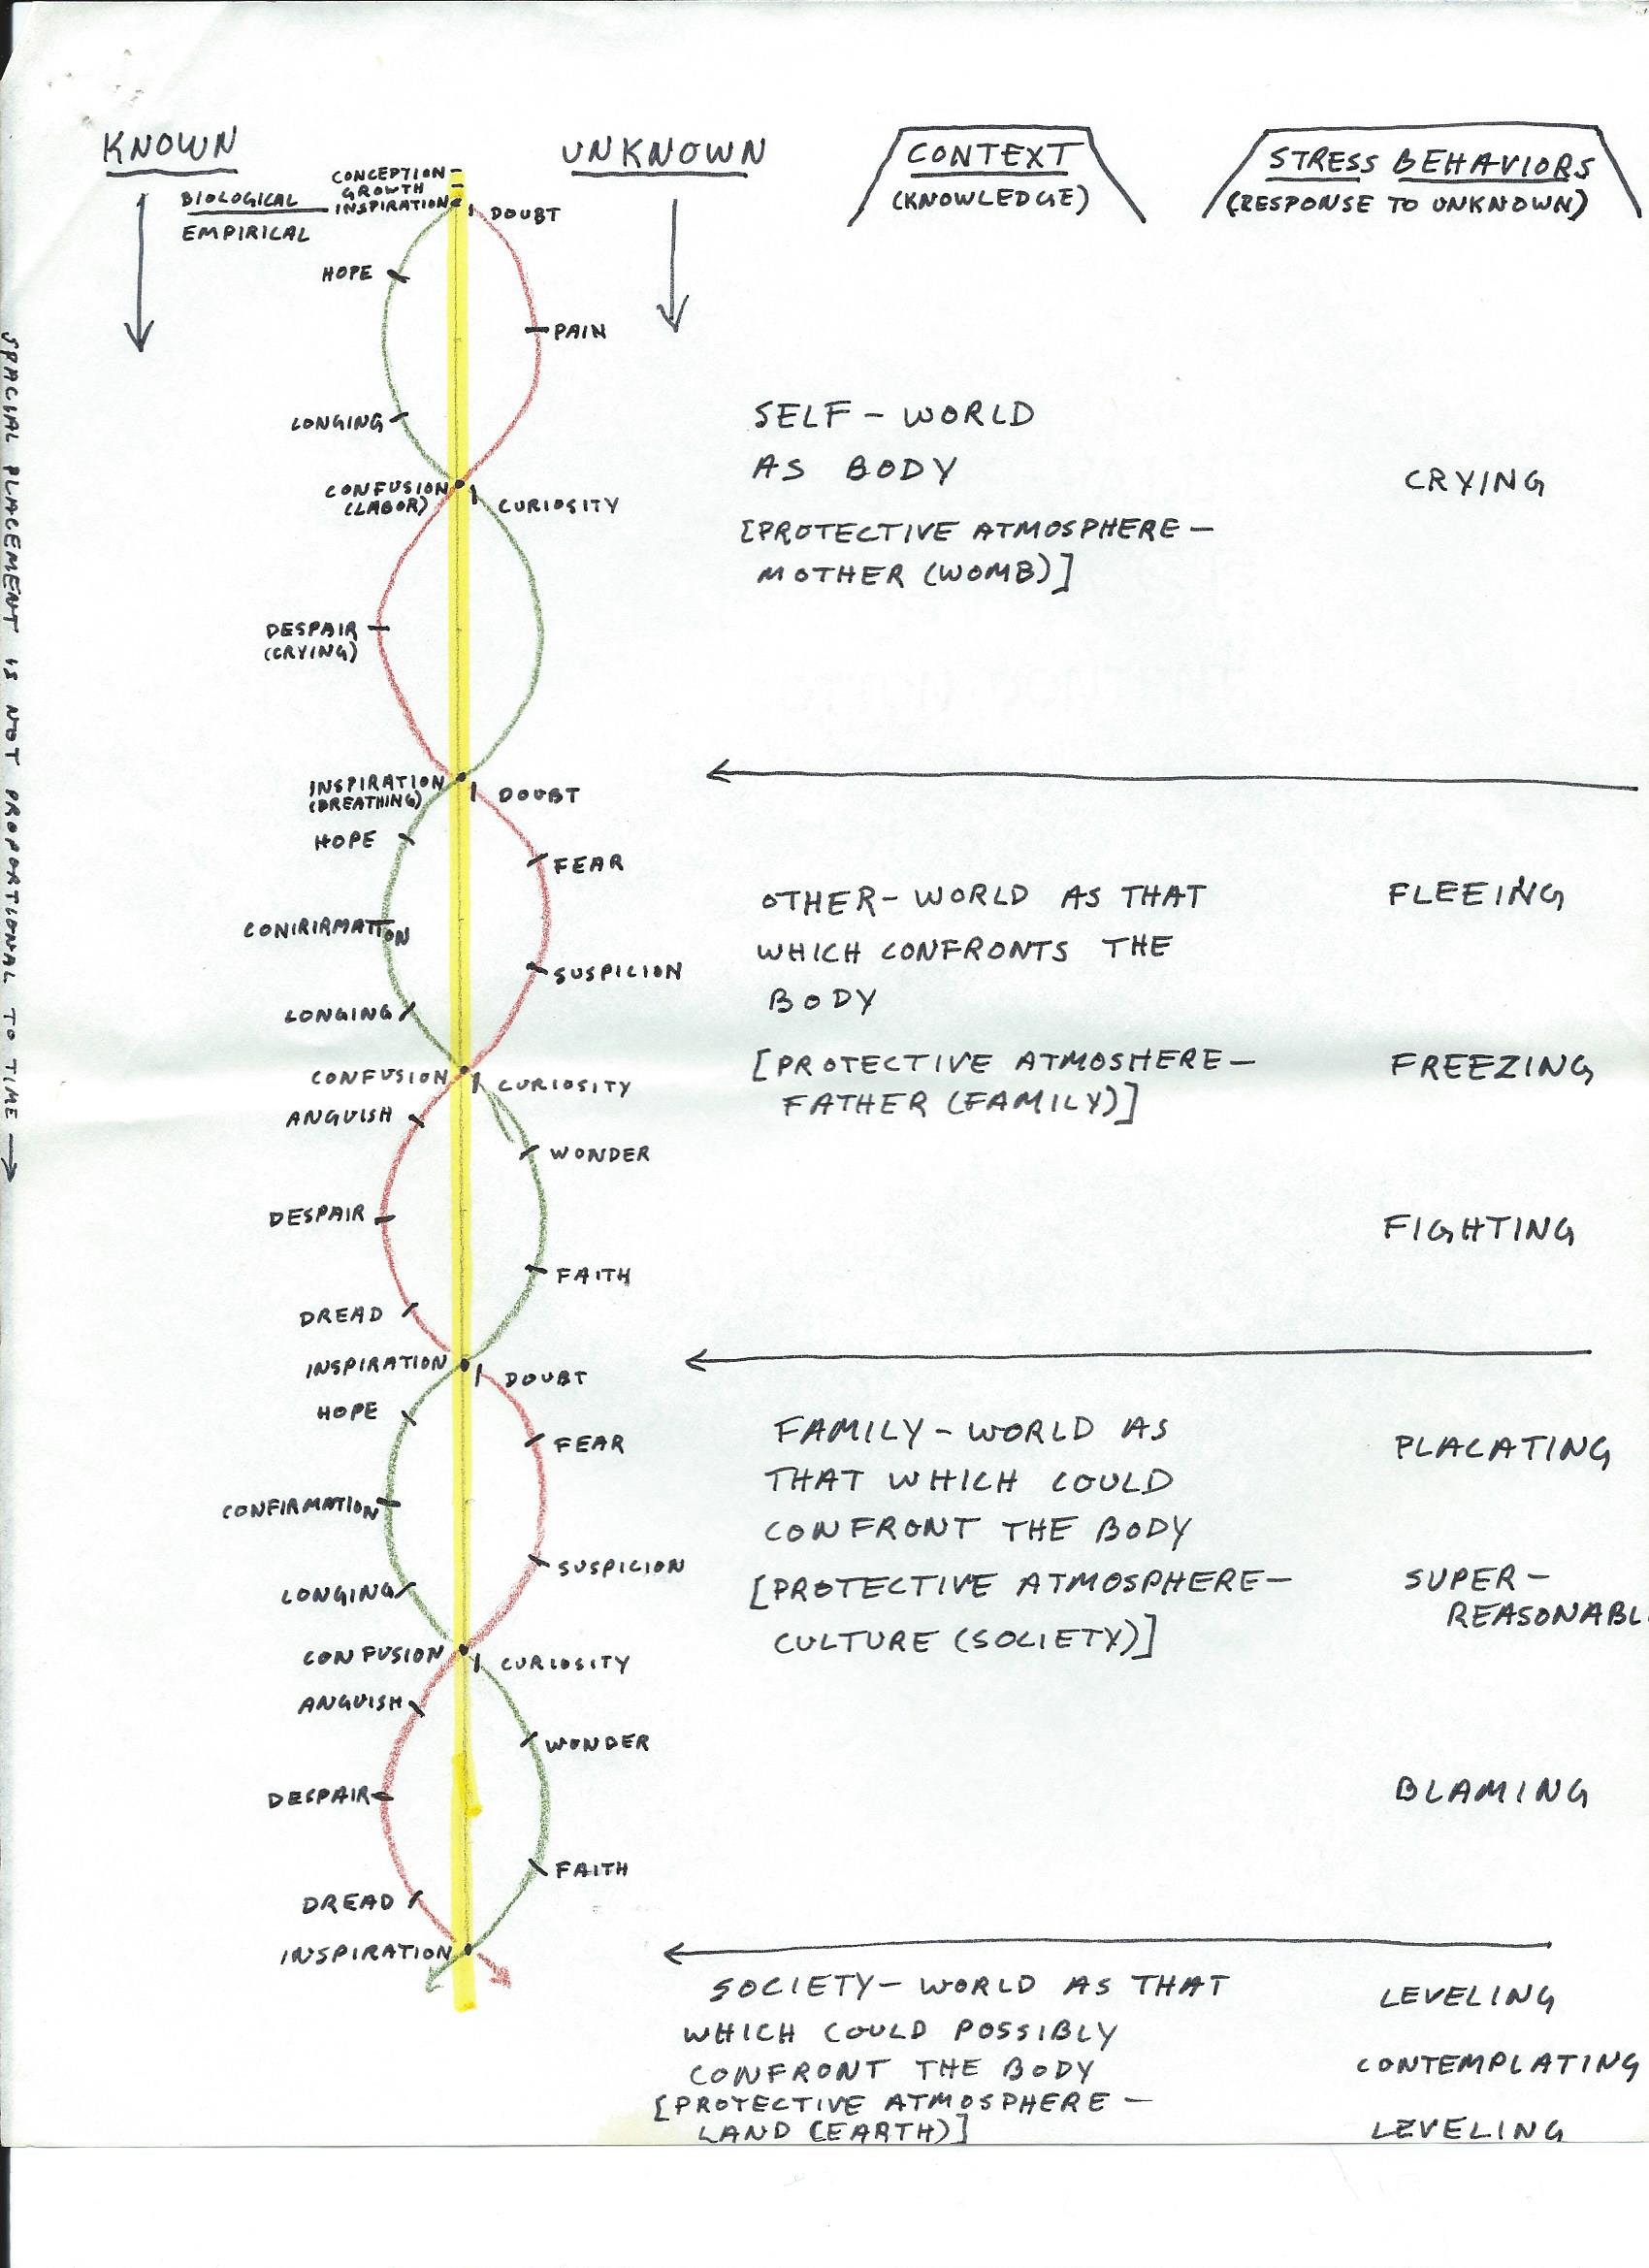 KNOWN
UNKNOWN
CONTEXT
(KNOWLEDGE)
STRESS BEHAVIORS
(RESPONSE TO UNKNOWN)
CONCEPTION
GROWTH
BIOLOGICAL
INSPIRATION
DOUBT
EMPIRICAL
HOPE
PAIN
LONGING
SELF - WORLD
AS BODY
[PROTECTIVE ATMOSPHERE -
MOTHER (WOMB)]
CRYING
CONFUSION
(LABOR)
CURIOSITY
DESPAIR
(CRYING)
INSPIRATION
(BREATHING)
DOUBT
HOPE
FEAR
CONIRIRMATION
SUSPICION
LONGING
OTHER - WORLD AS THAT
WHICH CONFRONTS THE
BODY
[PROTECTIVE ATMOSHERE -
FATHER (FAMILY)]
FLEEING
FREEZING
FIGHTING
CONFUSION
CURIOSITY
ANGUISH
WONDER
DESPAIR
FAITH
DREAD
INSPIRATION
DOUBT
HOPE
FEAR
CONFIRMATION
SUSPICION
LONGING
FAMILY - WORLD AS
THAT WHICH COULD
CONFRONT THE BODY
[PROTECTIVE ATMOSPHERE -
CULTURE (SOCIETY)]
PLACATING
SUPER -
REASONABL
BLAMING
CONFUSION
CURIOSITY
ANGUISH
WONDER
DESPAIR
FAITH
DREAD
INSPIRATION
SOCIETY - WORLD AS THAT
WHICH COULD POSSIBLY
CONFRONT THE BODY
[PROTECTIVE ATMOSPHERE -
LAND (EARTH)]
LEVELING
CONTEMPLATING
LEVELING
SPACIAL PLACEMENT IS NOT PROPORTIONAL TO TIME →